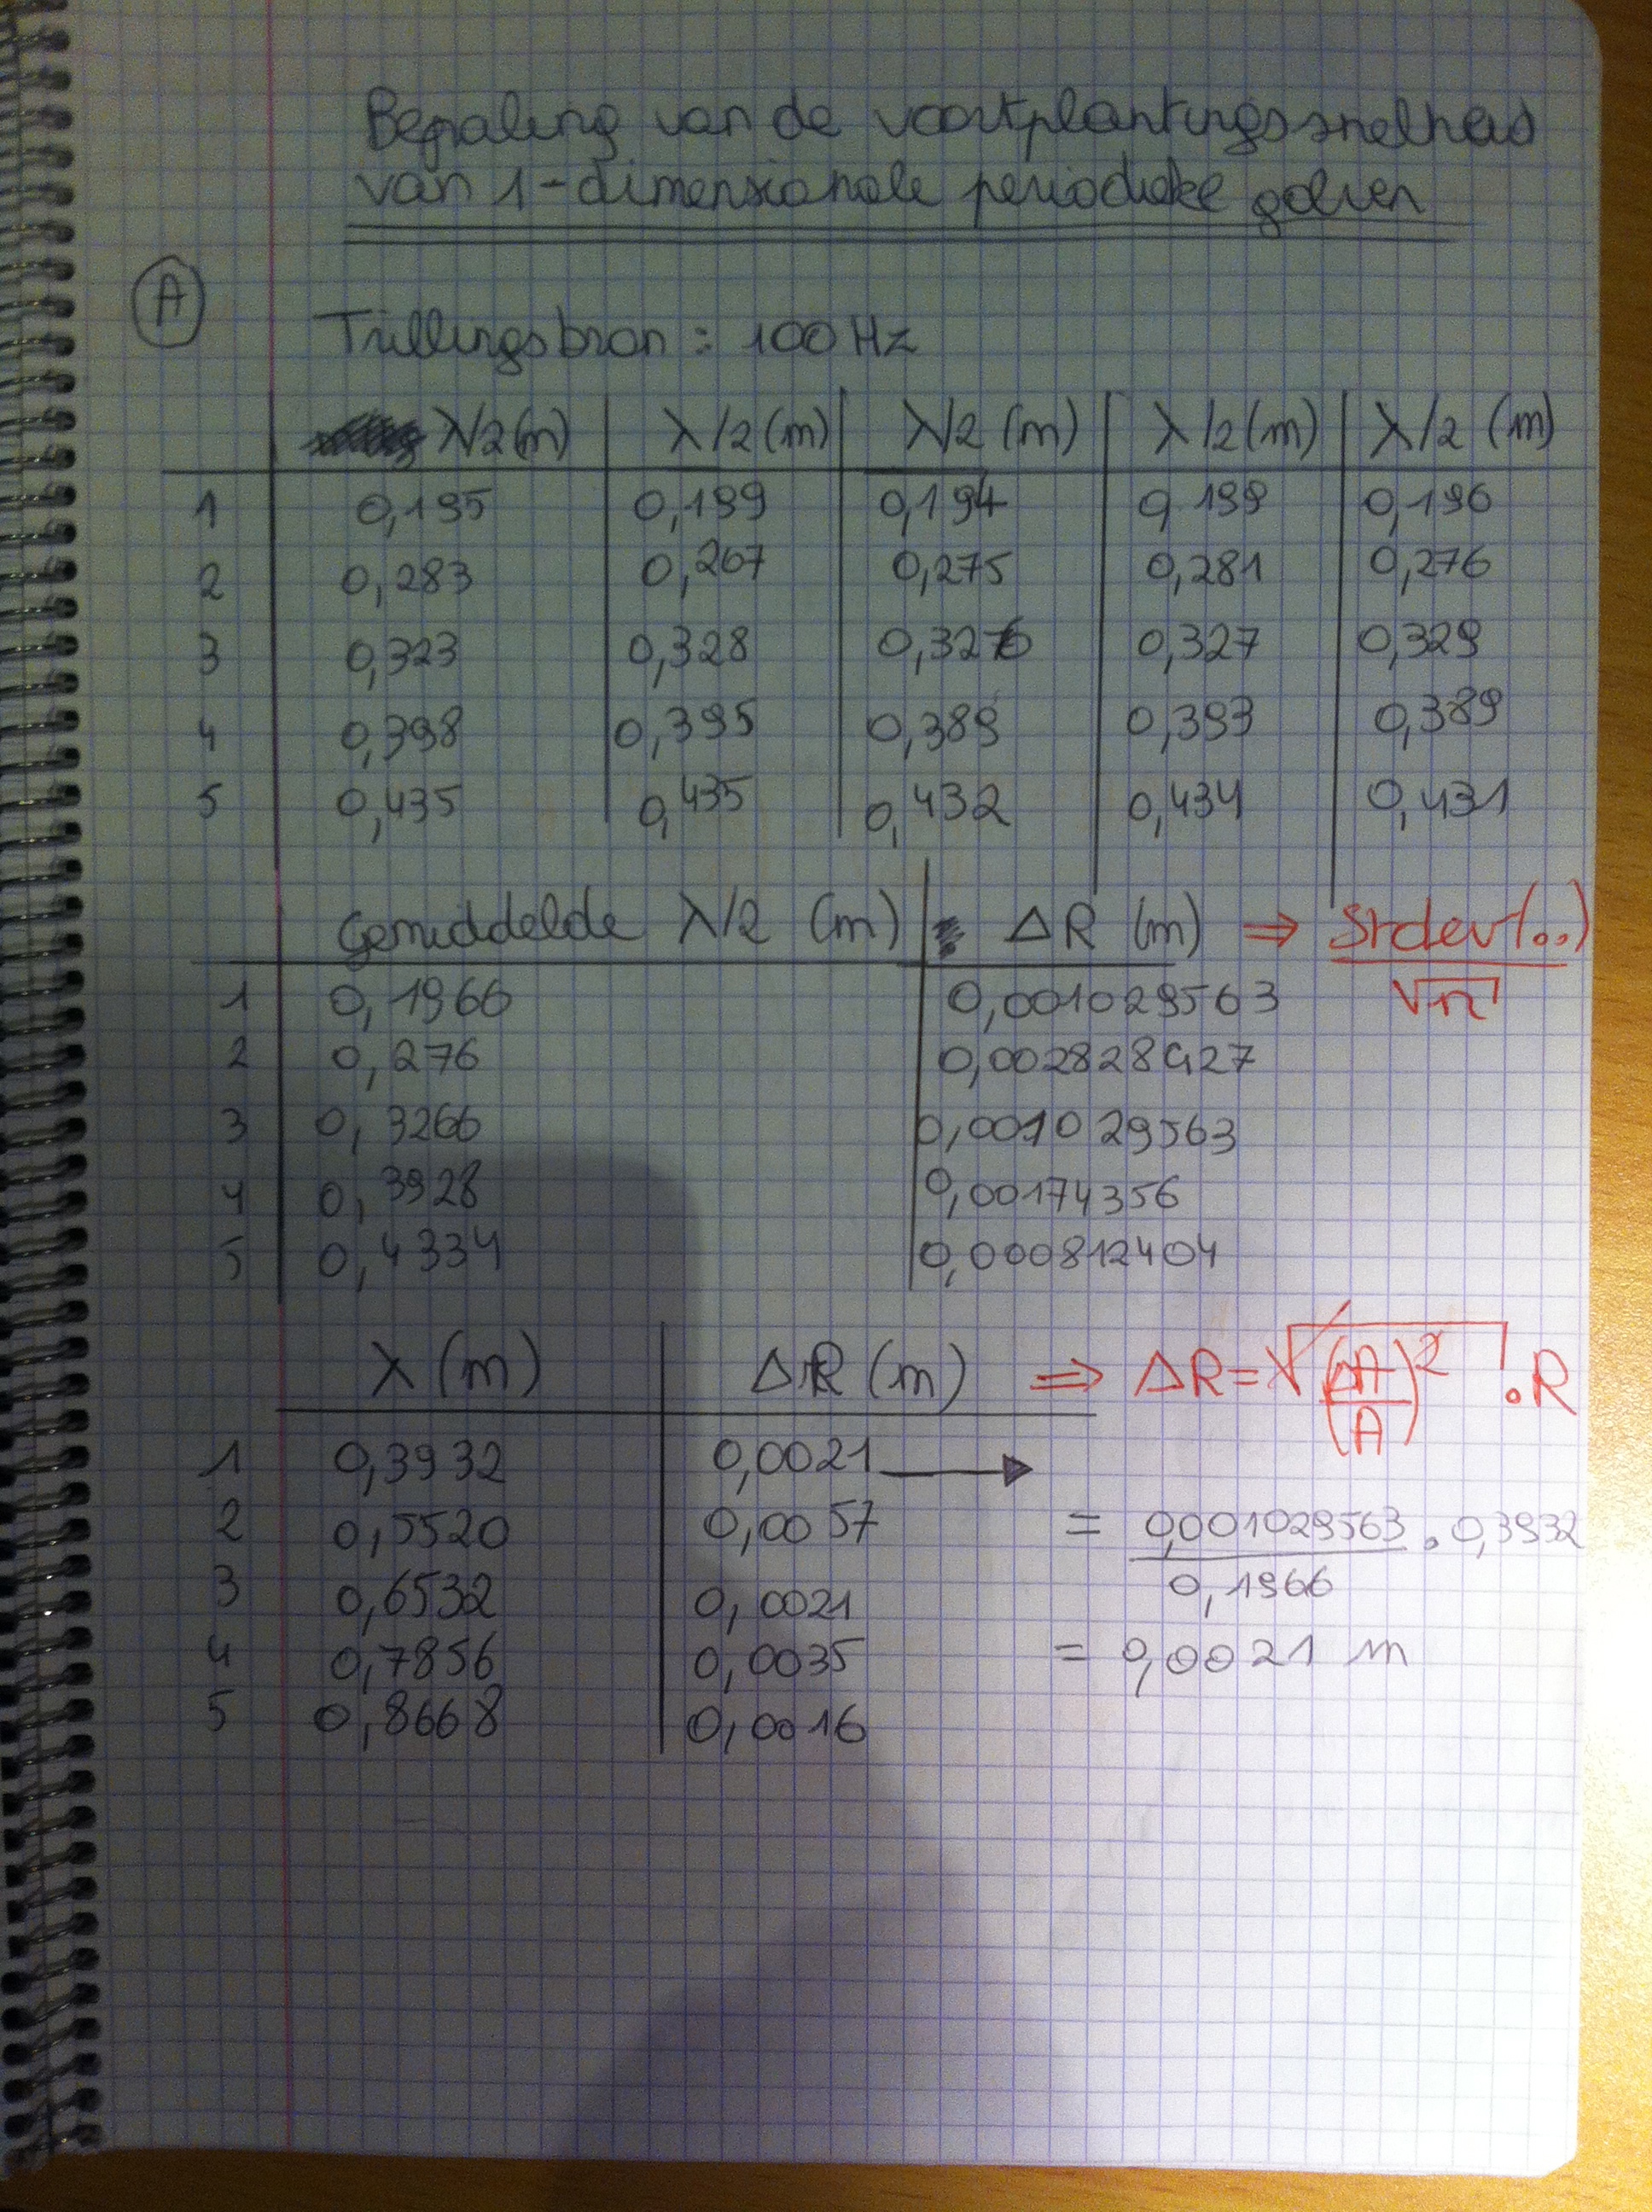 Bepaling van de voortplantingssnelheid
van 1-dimensionale periodieke golven
A
Trillingsbron = 100 Hz
λ/2(m) λ/2(m) λ/2 (m) λ/2(m) λ/2 (m)
1 0,195 0,199 0,194 0,199 0,196
2 0,283 0,267 0,275 0,281 0,276
3 0,323 0,328 0,326 0,327 0,329
4 0,398 0,395 0,389 0,393 0,389
5 0,435 0,435 0,432 0,434 0,431
Gemiddelde λ/2 (m) ΔR (m) ⇒ Stdev(..)/√n
1 0,1966 0,001029563
2 0,276 0,002828427
3 0,3266 0,001029563
4 0,3928 0,00174356
5 0,4334 0,000812404
λ (m) ΔR (m) ⇒ ΔR = √(ΔA/A)² . R
1 0,3932 0,0021
2 0,5520 0,0057 = 0,001029563/0,1966 . 0,3932
3 0,6532 0,0021
4 0,7856 0,0035 = 0,0021 m
5 0,8668 0,0016